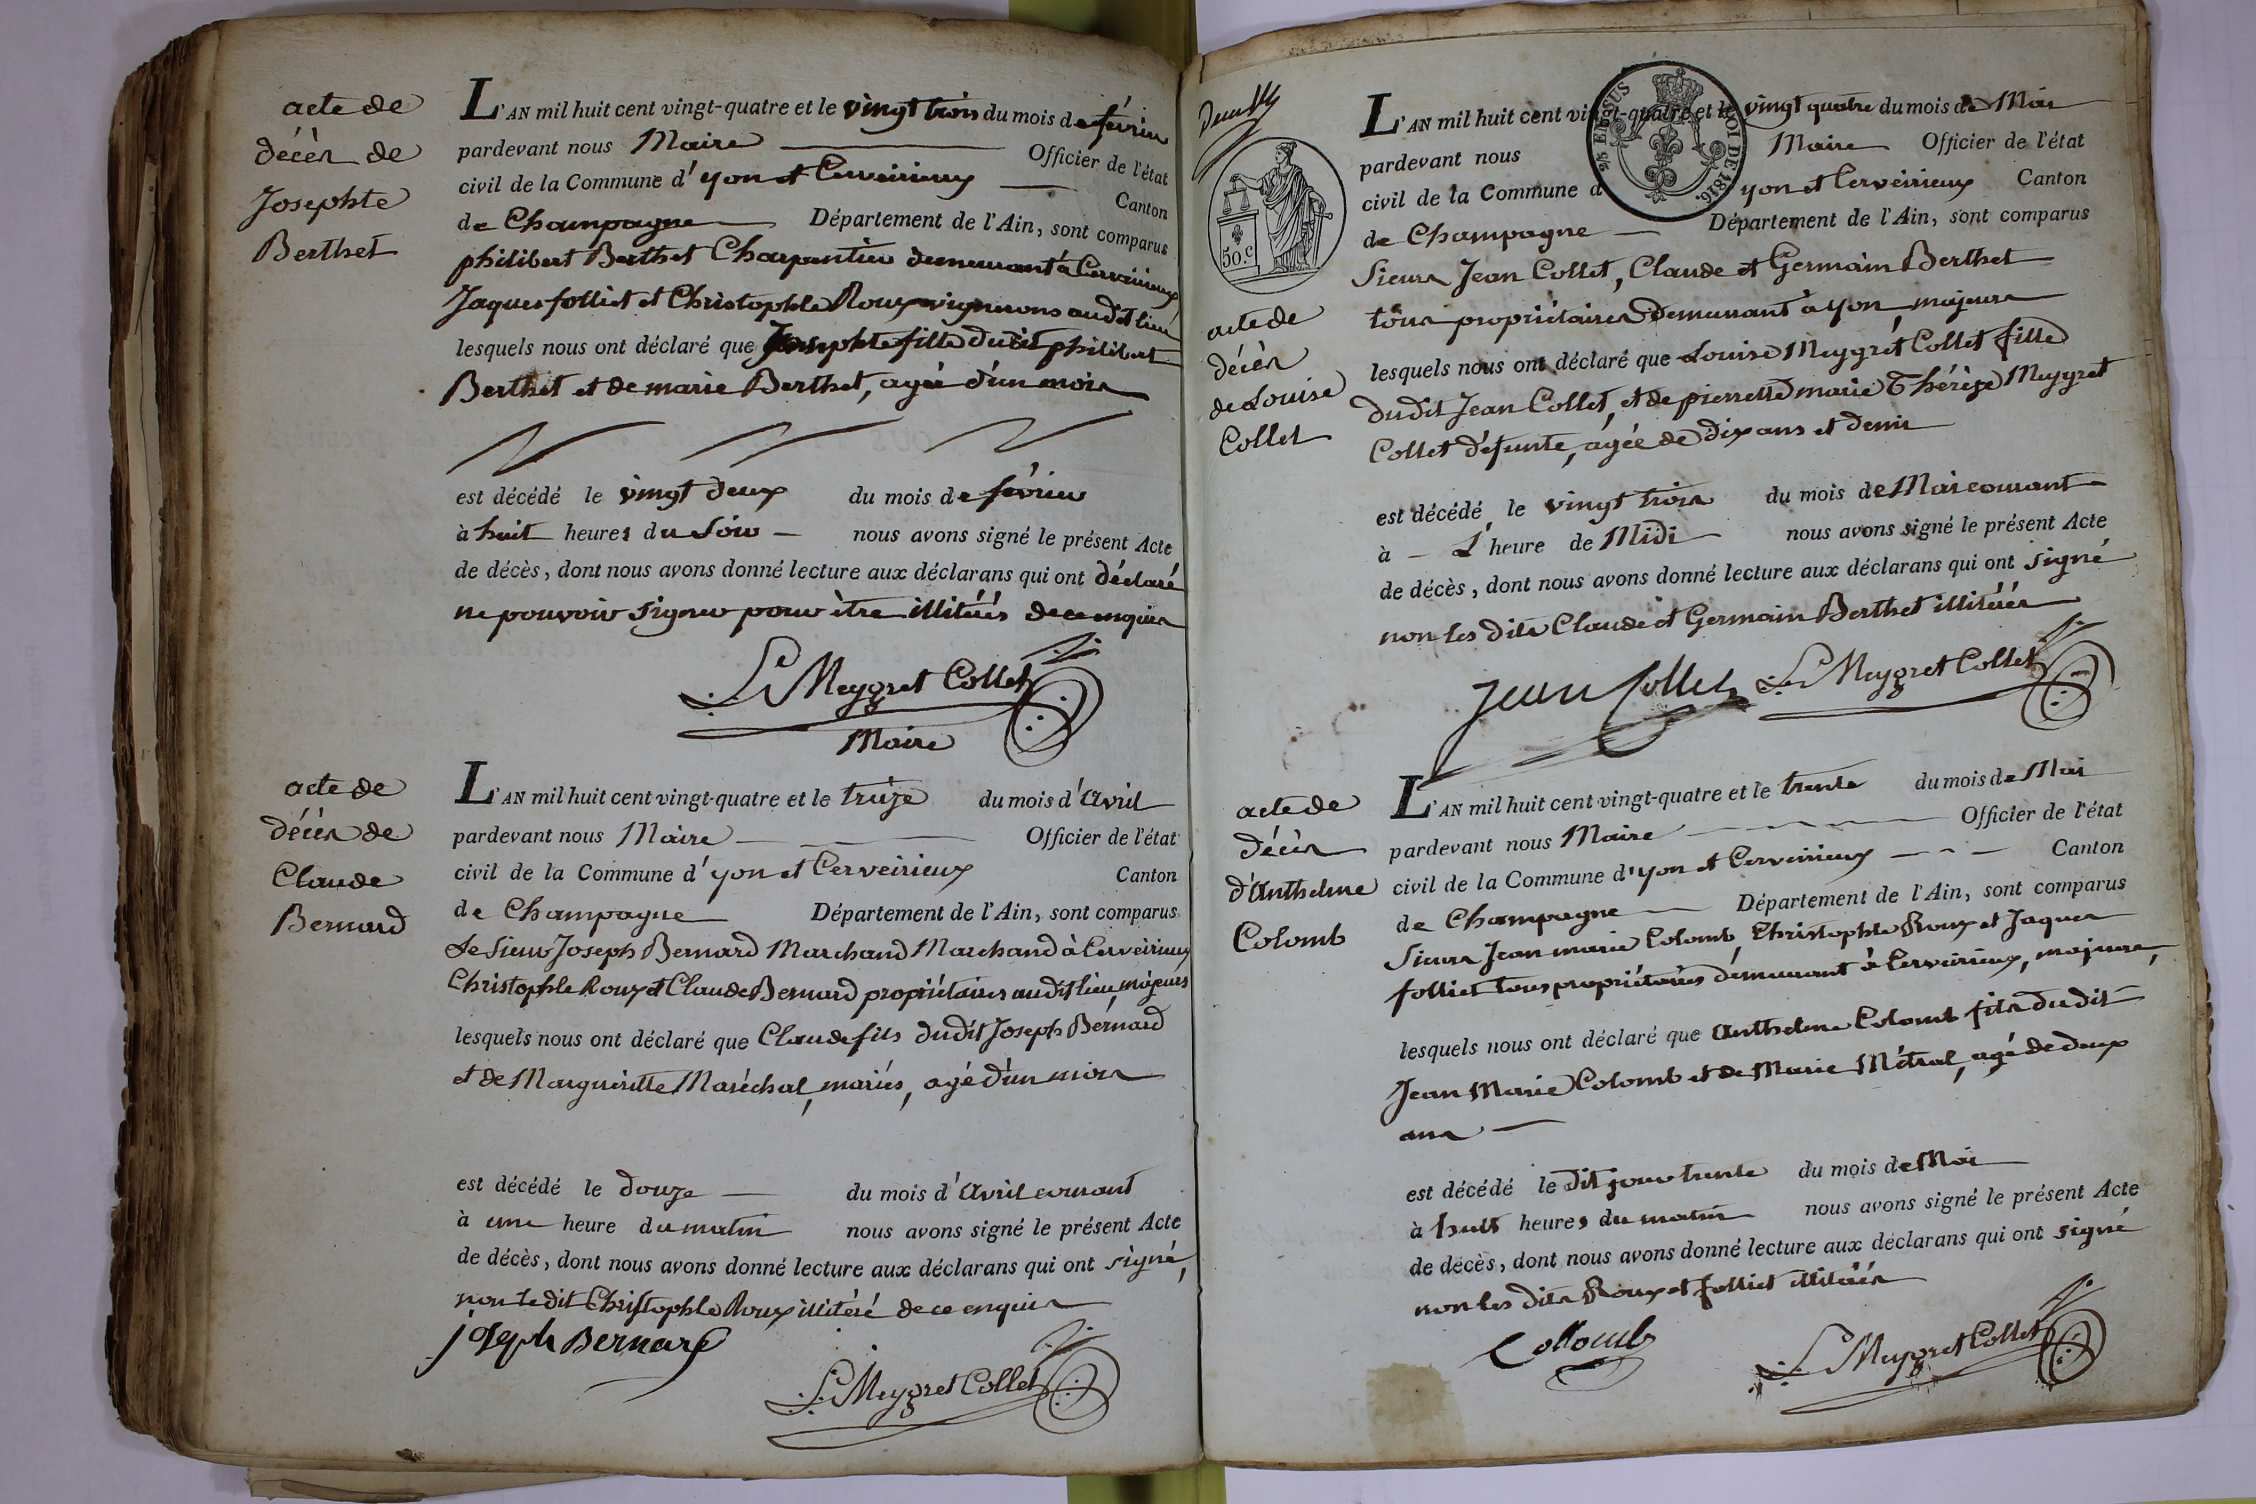 acte de
décès de
Josephte
Berthet
L'AN mil huit cent vingt-quatre et le vingt trois du mois de février
pardevant nous Maire Officier de l'état
civil de la Commune d'yon et Cerveirieux Canton
de Champagne Département de l'Ain, sont comparus
philibert Berthet Charpentier demeurant à Cerveirieux
Jaques folliet et Christophle Roux vignerons audit lieu
lesquels nous ont déclaré que Josephte fille dudit philibert
Berthet et de marie Berthet, agée d'un mois
est décédé le vingt deux du mois de février
à huit heures du Soir nous avons signé le présent Acte
de décès, dont nous avons donné lecture aux déclarans qui ont déclaré
ne pouvoir signer pour être illitérés de ce enquis
L Meygret Collet
Maire
acte de
décès de
Claude
Bernard
L'AN mil huit cent vingt-quatre et le treize du mois d'avril
pardevant nous Maire Officier de l'état
civil de la Commune d'yon et Cerveirieux Canton
de Champagne Département de l'Ain, sont comparus
Le Sieur Joseph Bernard Marchand Marchand à Cerveirieux
Christophle Roux et Claude Bernard propriétaires audit lieu, majeurs
lesquels nous ont déclaré que Claude fils dudit Joseph Bernard
et de Margueritte Maréchal, mariés, agé d'un mois
est décédé le douze du mois d'avril courant
à une heure du matin nous avons signé le présent Acte
de décès, dont nous avons donné lecture aux déclarans qui ont signé,
non le dit Christophle Roux illitéré de ce enquis
joseph Bernard
L Meygret Collet
2/5 EN SUS
LOI DE 1816.
50.c
acte de
décès
de Louise
Collet
L'AN mil huit cent vingt-quatre et le vingt quatre du mois de Mai
pardevant nous Maire Officier de l'état
civil de la Commune d yon et Cerveirieux Canton
de Champagne Département de l'Ain, sont comparus
Sieurs Jean Collet, Claude et Germain Berthet
tous propriétaires demeurant à yon, majeurs
lesquels nous ont déclaré que Louise Meygret Collet fille
dudit Jean Collet, et de pierrette marie Thérèze Meygret
Collet défunte, agée de dix ans et demi
est décédé le vingt trois du mois de Mai courant
à L'heure de Midi nous avons signé le présent Acte
de décès, dont nous avons donné lecture aux déclarans qui ont signé
non les dits Claude et Germain Berthet illitérés
Jean Collet L Meygret Collet
acte de
décès
d'Anthelme
Colomb
L'AN mil huit cent vingt-quatre et le trente du mois de Mai
pardevant nous Maire Officier de l'état
civil de la Commune d'yon et Cerveirieux Canton
de Champagne Département de l'Ain, sont comparus
Sieurs Jean marie Colomb, Christophle Roux et Jaques
folliet tous propriétaires demeurant à Cerveirieux, majeurs,
lesquels nous ont déclaré que anthelme Colomb fils du dit
Jean Marie Colomb et de Marie Métral, agé de deux
ans
est décédé le dit jour trente du mois de Mai
à huit heures du matin nous avons signé le présent Acte
de décès, dont nous avons donné lecture aux déclarans qui ont signé
non les dits Roux et folliet illitérés
Collomb
L Meygret Collet